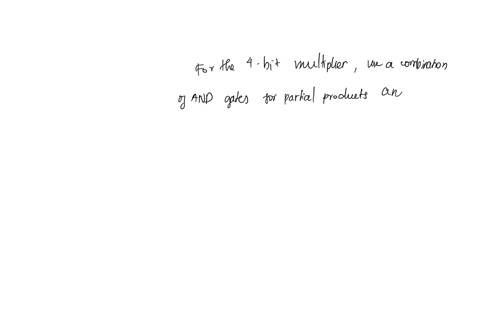 For the 4-bit multiplier, use a combination
of AND gates for partial products an